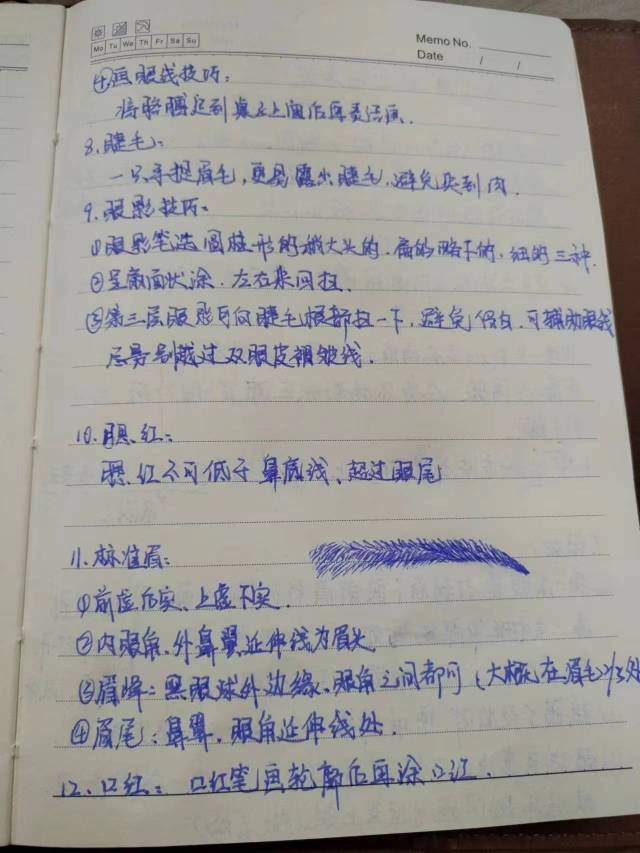 Mo Tu We Th Fr Sa Su
Memo No.
Date / /
④画眼线技巧:
将胳膊 到桌上 后再灵活画.
8.睫毛:
一只手提眉毛,更易露出睫毛,避免夹到肉.
9.眼影技巧.
①眼影笔选圆柱形的稍大头的.扁的略下的.细的三种.
②呈扇面状涂.左右来回扫.
③第三层眼影可向睫毛根部扫一下,避免留白.可辅助眼线
尽易别越过双眼皮褶皱线.
10.腮红:
腮红不可低于鼻底线、超过眼尾
11.标准眉:
①前虚后实、上虚下实.
②内眼角、外鼻翼延伸线为眉头
③眉峰:黑眼球外边缘、眼角之间都可(大概在眉毛2/3处
④眉尾:鼻翼、眼角延伸线处.
12.口红:口红笔画轮廓后再涂口红.